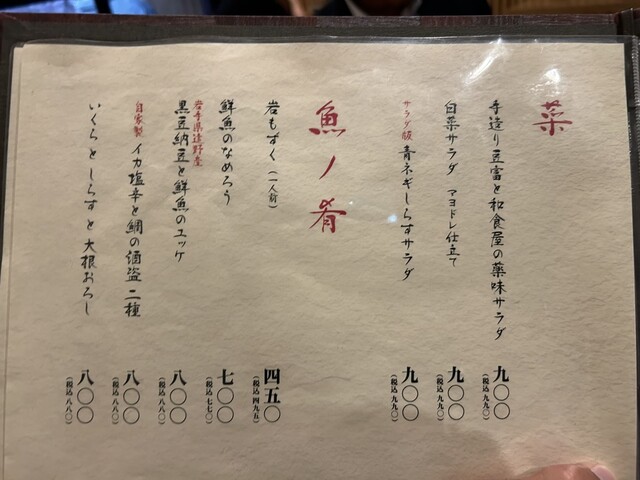 菜
手造り豆富と和食屋の薬味サラダ
九〇〇
(税込 九九〇)
白菜サラダ マヨドレ仕立て
九〇〇
(税込 九九〇)
サラダ版 青ネギしらすサラダ
九〇〇
(税込 九九〇)
魚ノ肴
岩もずく(一人前)
四五〇
(税込 四九五)
鮮魚のなめろう
七〇〇
(税込 七七〇)
岩手県遠野産
黒豆納豆と鮮魚のユッケ
八〇〇
(税込 八八〇)
自家製 イカ塩辛と鯛の酒盗 二種
八〇〇
(税込 八八〇)
いくらとしらすと大根おろし
八〇〇
(税込 八八〇)